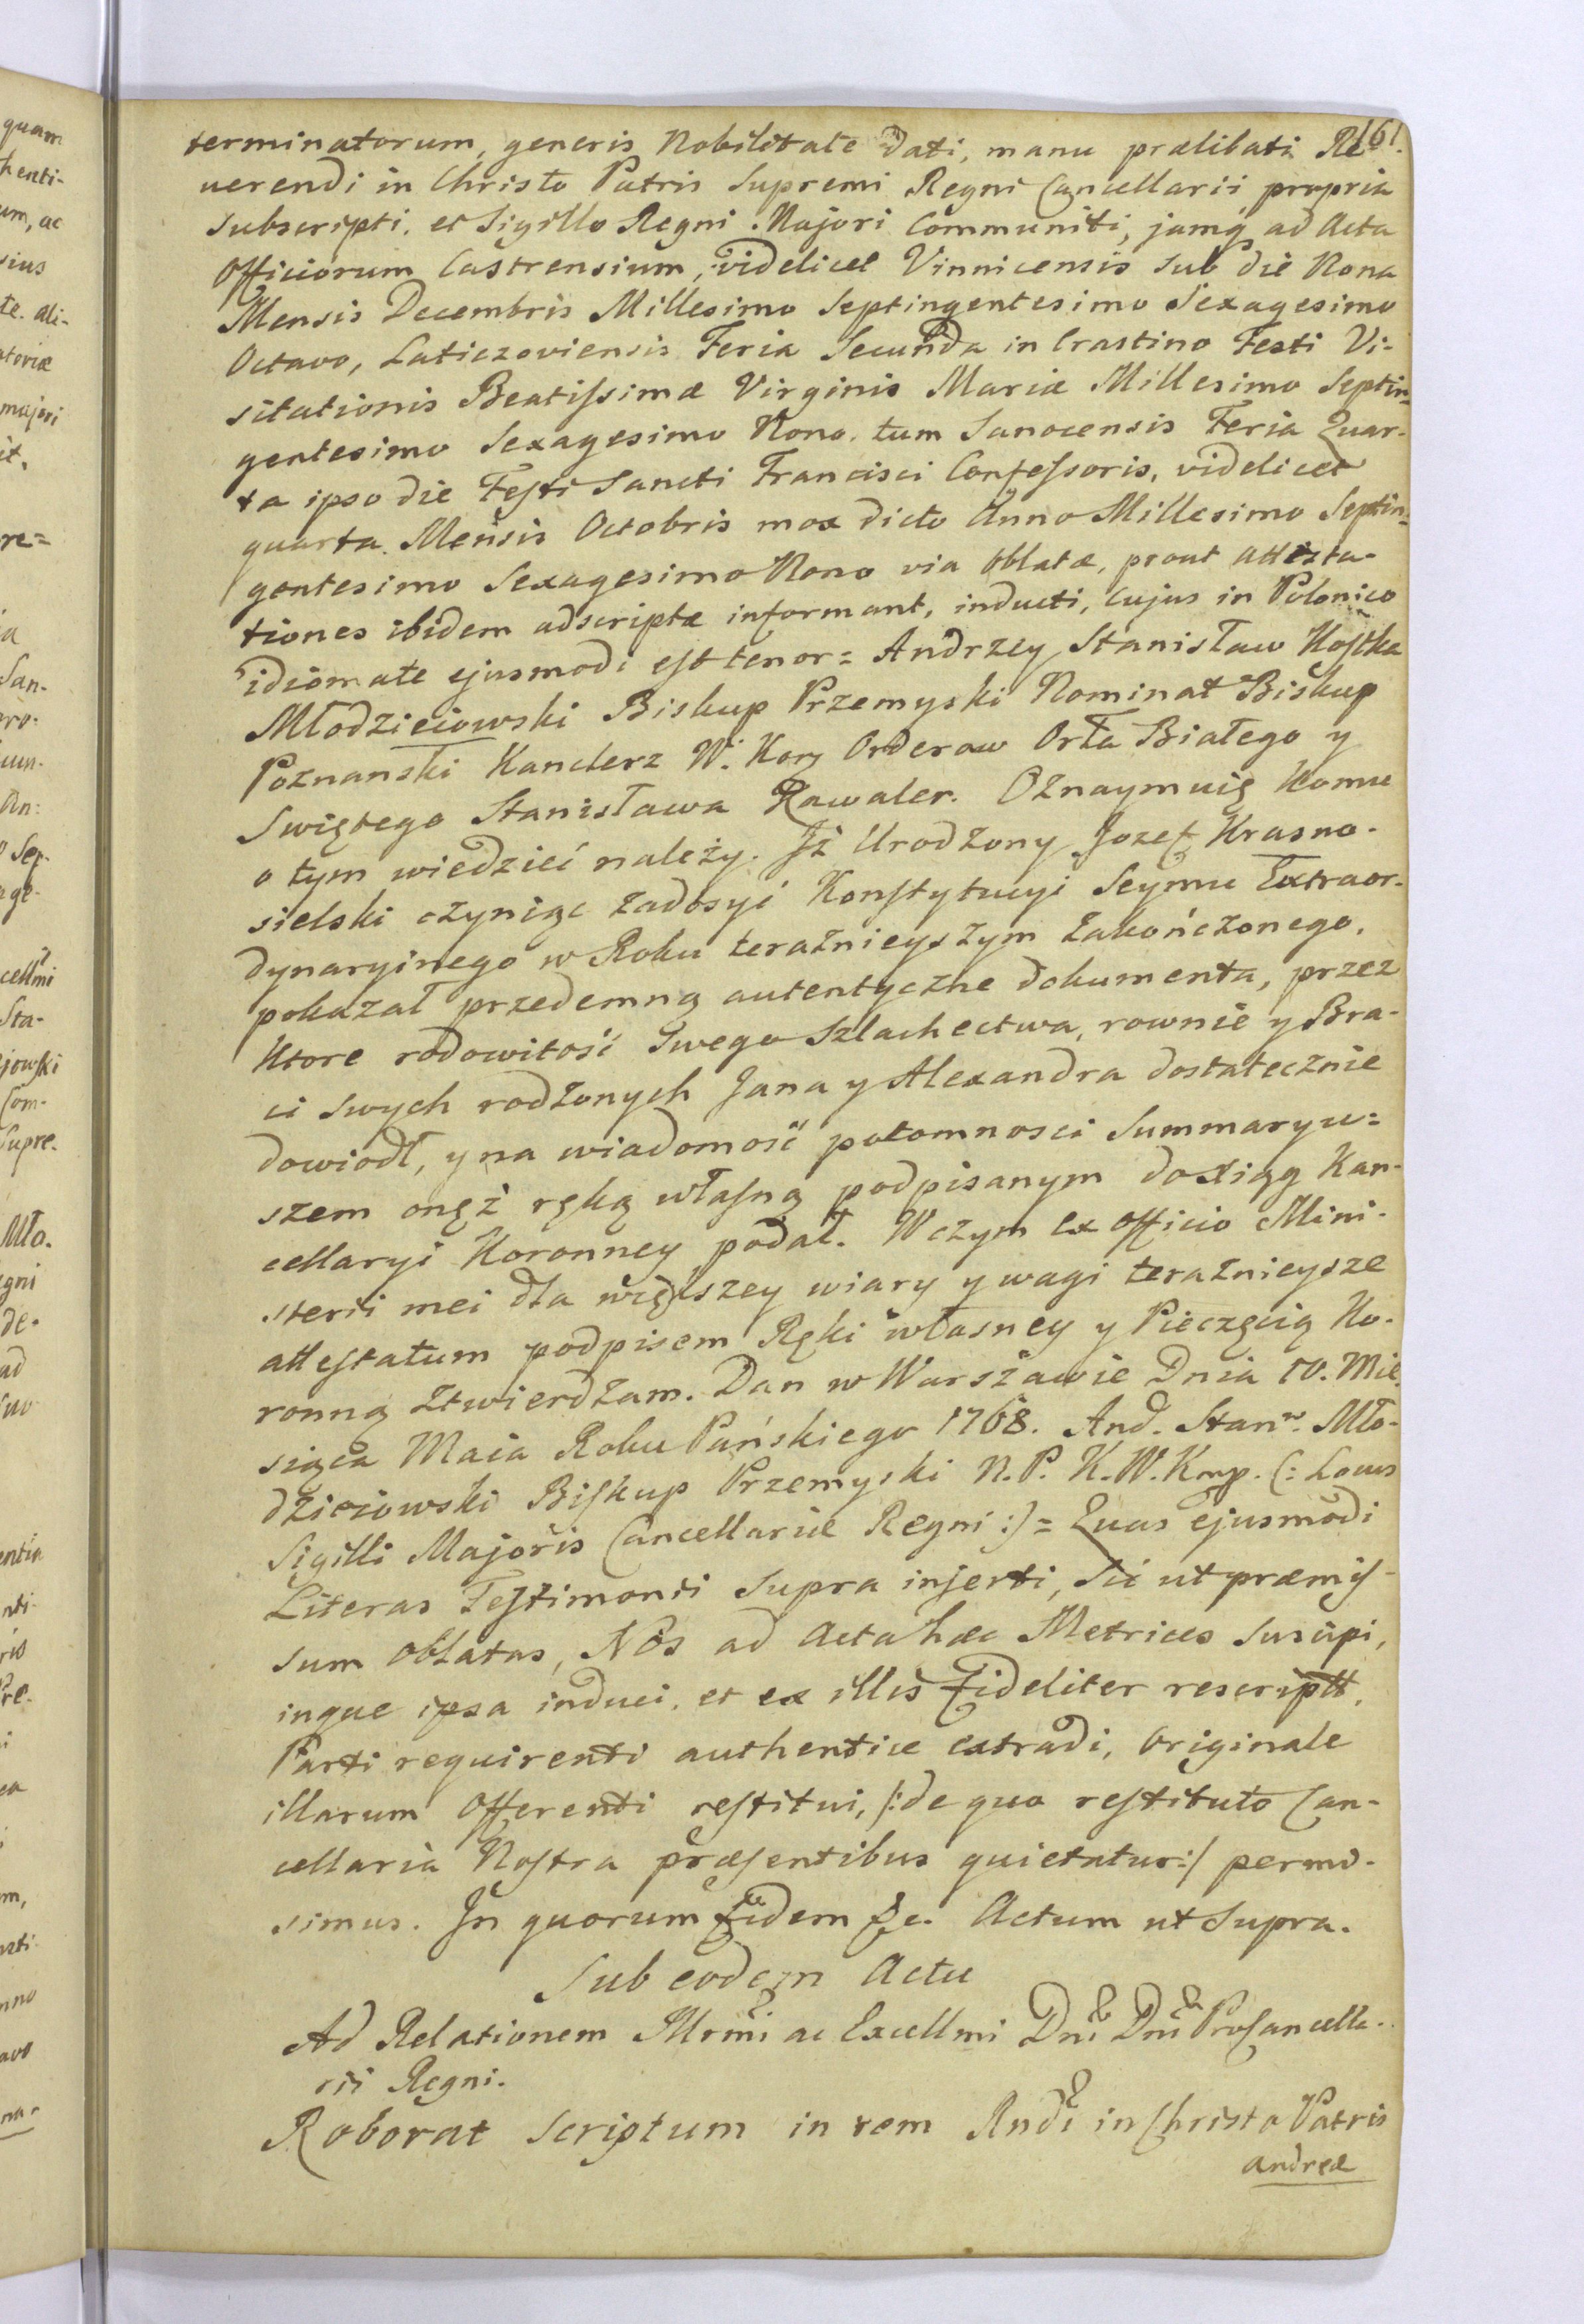 161.
terminatorum, generis Nobilitate dati, manu prælibati Re-
uerendi in Christo Patris Supremi Regni Cancellarii propria
subscripti, et Sigillo Regni Majori Communiti, jamq ad Acta
Officiorum Castrensium, videlicet Vinnicensis sub die Nona
Mensis Decembris Millesimo Septingentesimo Sexagesimo
Octavo, Laticzoviensis Feria Secunda in Crastino Festi Vi-
sitationis Beatissimæ Virginis Mariæ Millesimo Septin=
gentesimo Sexagesimo Nono, tum Sanocensis Feria Quar-
ta ipso die Festi Sancti Francisci Confessoris, videlicet
quarta Mensis Octobris mox dicto Anno Millesimo Septin=
gentesimo Sexagesimo Nono via Oblatæ, prout attesta-
tiones ibidem adscriptæ informant, inducti, Cujus in Polonico
idiomate ejusmodi est tenor = Andrzey Stanisław Kostka
Młodzieiowski Biskup Przemyski Nominat Biskup
Poznanski Kanclerz W. Kor Orderow Orła Białego y
Swiętego Stanisława Kawaler. Oznaymuię Komu
o tym wiedzieć należy. Jż Urodzony Jozef Krasno-
sielski czyniąc zadosyć Konstytucyi Seymu Extraor-
dynaryinego w Roku teraznieyszym zakończonego,
pokazał przedemną autentyczne dokumenta, przez
Ktore rodowitość Swego Szlachectwa, rownie y Bra-
ci Swych rodzonych Jana y Alexandra dostatecznie
dowiodł, y na wiadomość potomnosci Summaryu=
szem onęż ręką własną podpisanym do Xiąg Kan-
cellaryi Koronney podał. W czym ex officio Mini-
sterii mei dla większey wiary y wagi teraznieysze
attestatum podpisem Ręki własney y Pieczęcią Ko-
ronną ztwierdzam. Dan w Warszawie Dnia 10. Mie
siąca Maia Roku Pańskiego 1768. And. Stanw. Mło-
dzieiowski Biskup Przemyski N.P. K.W.Krp. (: Locus
Sigilli Majoris Cancellariæ Regni :) = Quas ejusmodi
Literas Testimonii Supra inserti, Sic ut præmis-
sum oblatas, Nos ad Acta hæc Metrices Suscipi,
inque ipsa induci, et ex illis fideliter rescriptt,
Parti requirenti authentice extradi, Originale
illarum Offerenti restitui, /: de quo restituto Can-
cellaria Nostra præsentibus quietatur :/ permi-
simus. Jn quorum fidem &c. Actum ut Supra.
Sub eodem Actu
Ad Relationem Jllrmi ac Excellmi Dni Dni ProCancella-
rii Regni.
Roborat Scriptum in rem Rndi in Christo Patris
Andreæ